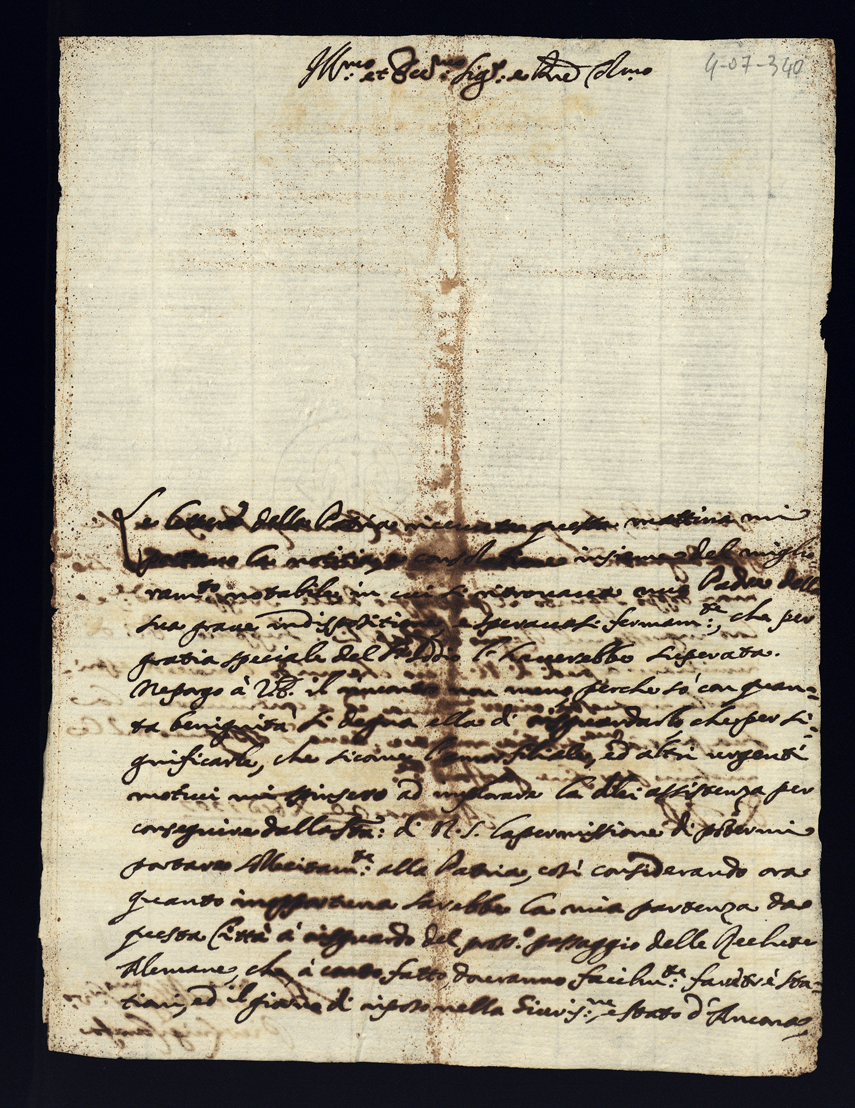 Ill.mo et Ecc.mo Sig.r e Pne Col.mo
4-07-340
Le lettere della Patria ricevute questa mattina mi
portano la notitia, e consolatione insieme del miglio-
ram.to notabile, in cui si ritrovava mio Padre della
sua grave indispositione, e speravasi fermam.te, che per
gratia speciale del Sig. Iddio l'haverebbe superata.
Ne porgo à V.E. il non meno perche sò con quan-
ta benignità si degna ella di risguardarlo, che per si-
gnificarle, che sicome l'amor filiale, ed altri urgenti
motivi mi spinsero ad implorare la di lei assistenza per
conseguire dalla S.tà di N. S. la permissione di potermi
portare sollecitam.te alla Patria, così considerando ora
quanto inopportuna sarebbe la mia partenza da
questa Città à risguardo del pross.o passaggio delle Reclute
Alemane, che à conto fatto doveranno facilm.te farsi trè sta-
tioni, ed il giorno di riposo nella Giuris.ne, e stato d'Ancona,